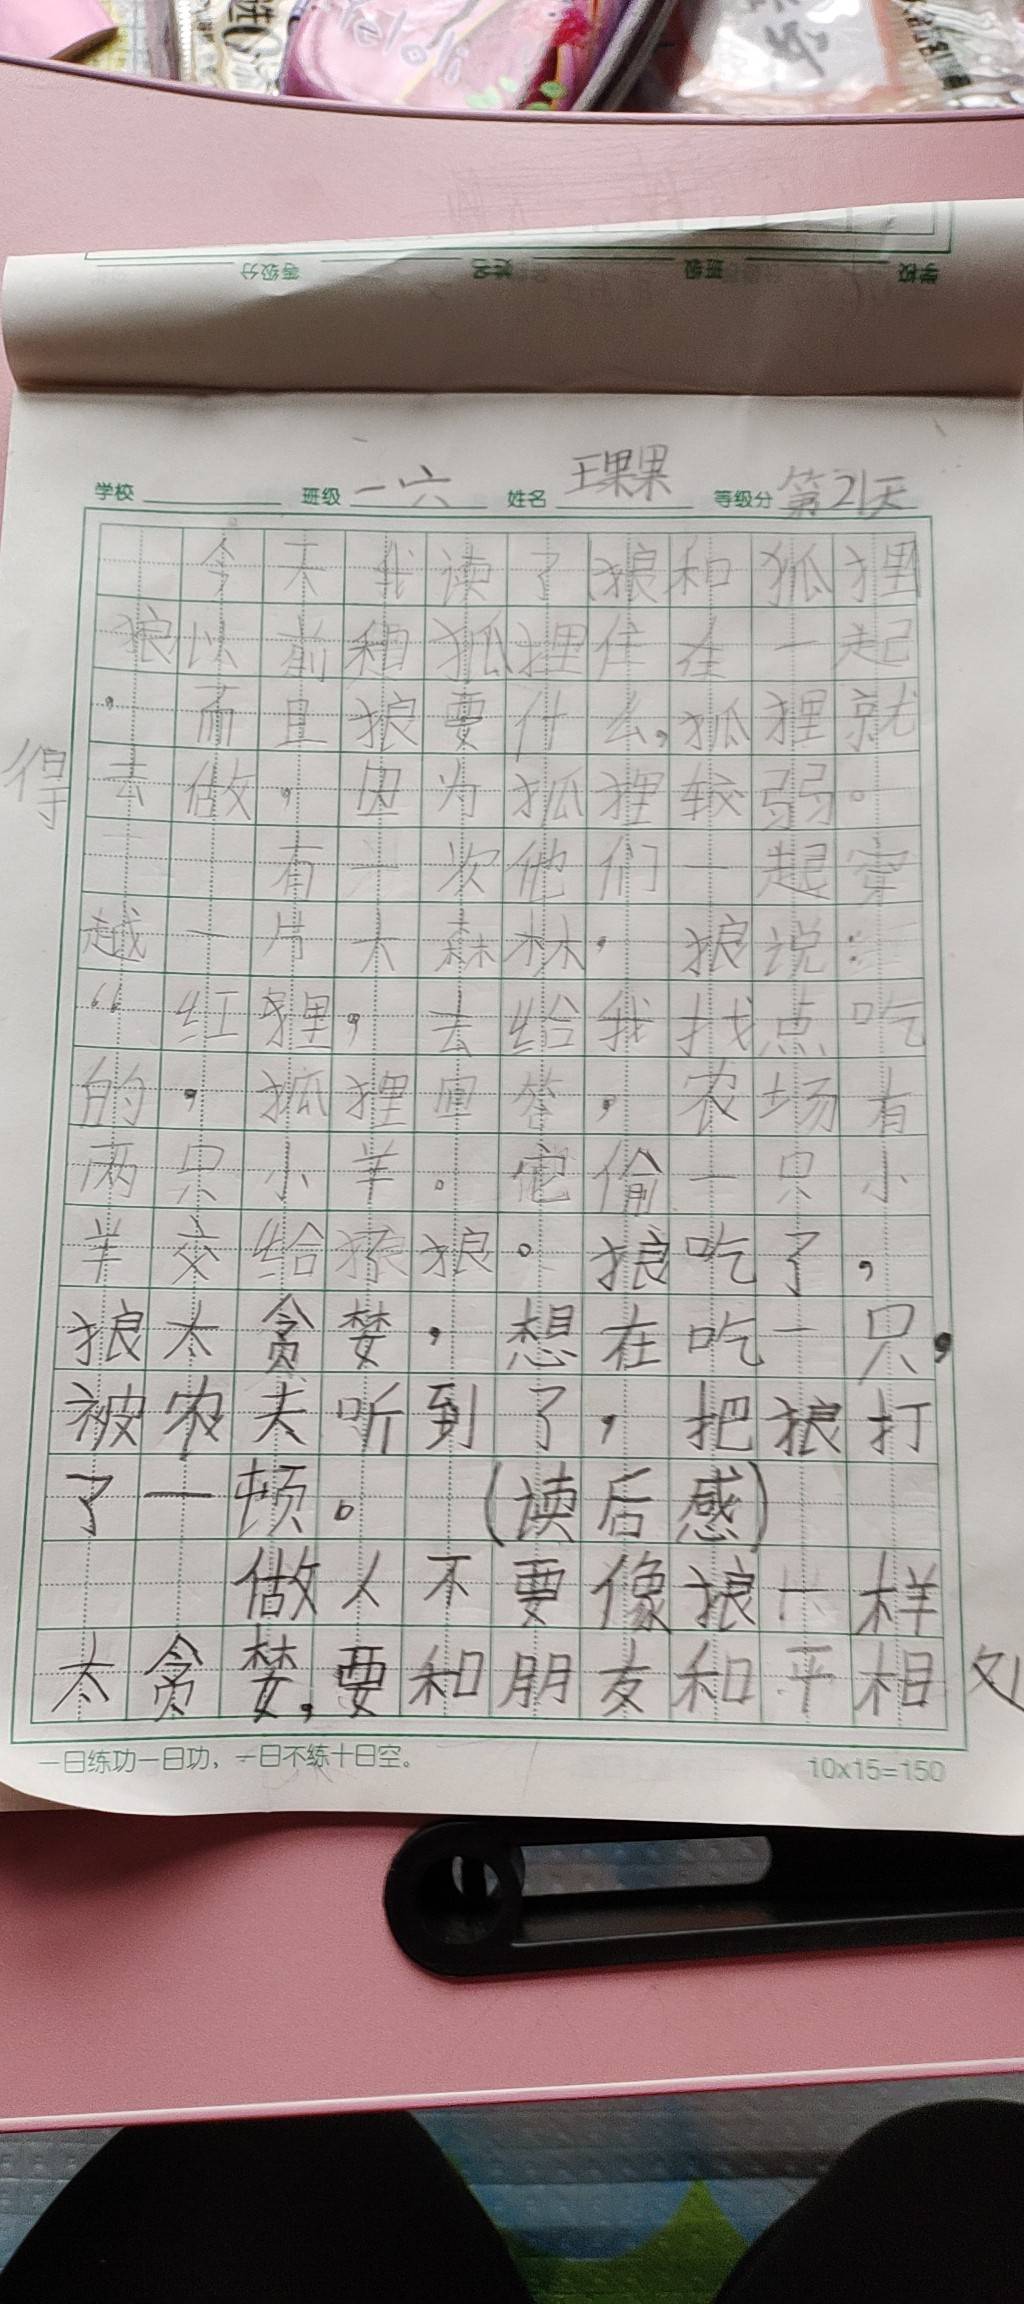 学校 班级 一六 姓名 王果果 等级分 第21天
今天我读了狼和狐狸
狼以前和狐狸住在一起
，而且狼要什么，狐狸就
得去做，因为狐狸较弱。
有一次他们一起穿
越一片大森林，狼说：
“红狸，去给我找点吃
的，狐狸回答，农场有
两只小羊。它偷一只小
羊交给狼。狼吃了，
狼太贪婪，想在吃一只，
被农夫听到了，把狼打
了一顿。（读后感）
做人不要像狼一样
太贪婪，要和朋友和平相处
一日练功一日功，一日不练十日空。 10x15=150